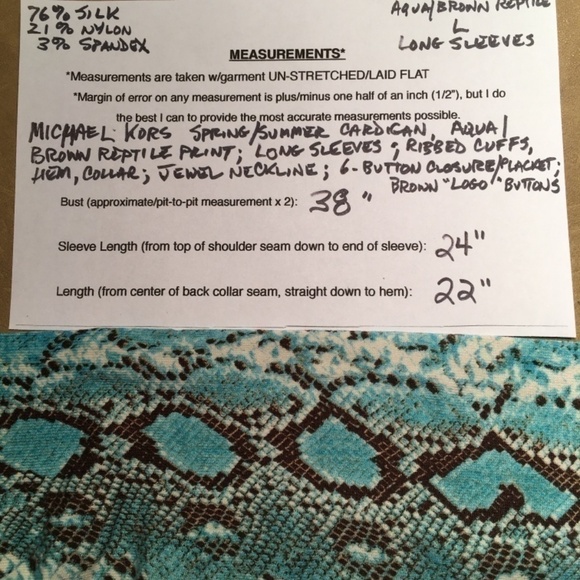 76% SILK
21% NYLON
3% SPANDEX
AQUA/BROWN REPTILE
L
LONG SLEEVES
MEASUREMENTS*
*Measurements are taken w/garment UN-STRETCHED/LAID FLAT
*Margin of error on any measurement is plus/minus one half of an inch (1/2"), but I do
the best I can to provide the most accurate measurements possible.
MICHAEL KORS SPRING/SUMMER CARDIGAN, AQUA/
BROWN REPTILE PRINT; LONG SLEEVES; RIBBED CUFFS,
HEM, COLLAR; JEWEL NECKLINE; 6-BUTTON CLOSURE/PLACKET;
BROWN "LOGO" BUTTONS
Bust (approximate/pit-to-pit measurement x 2): 38"
Sleeve Length (from top of shoulder seam down to end of sleeve): 24"
Length (from center of back collar seam, straight down to hem): 22"